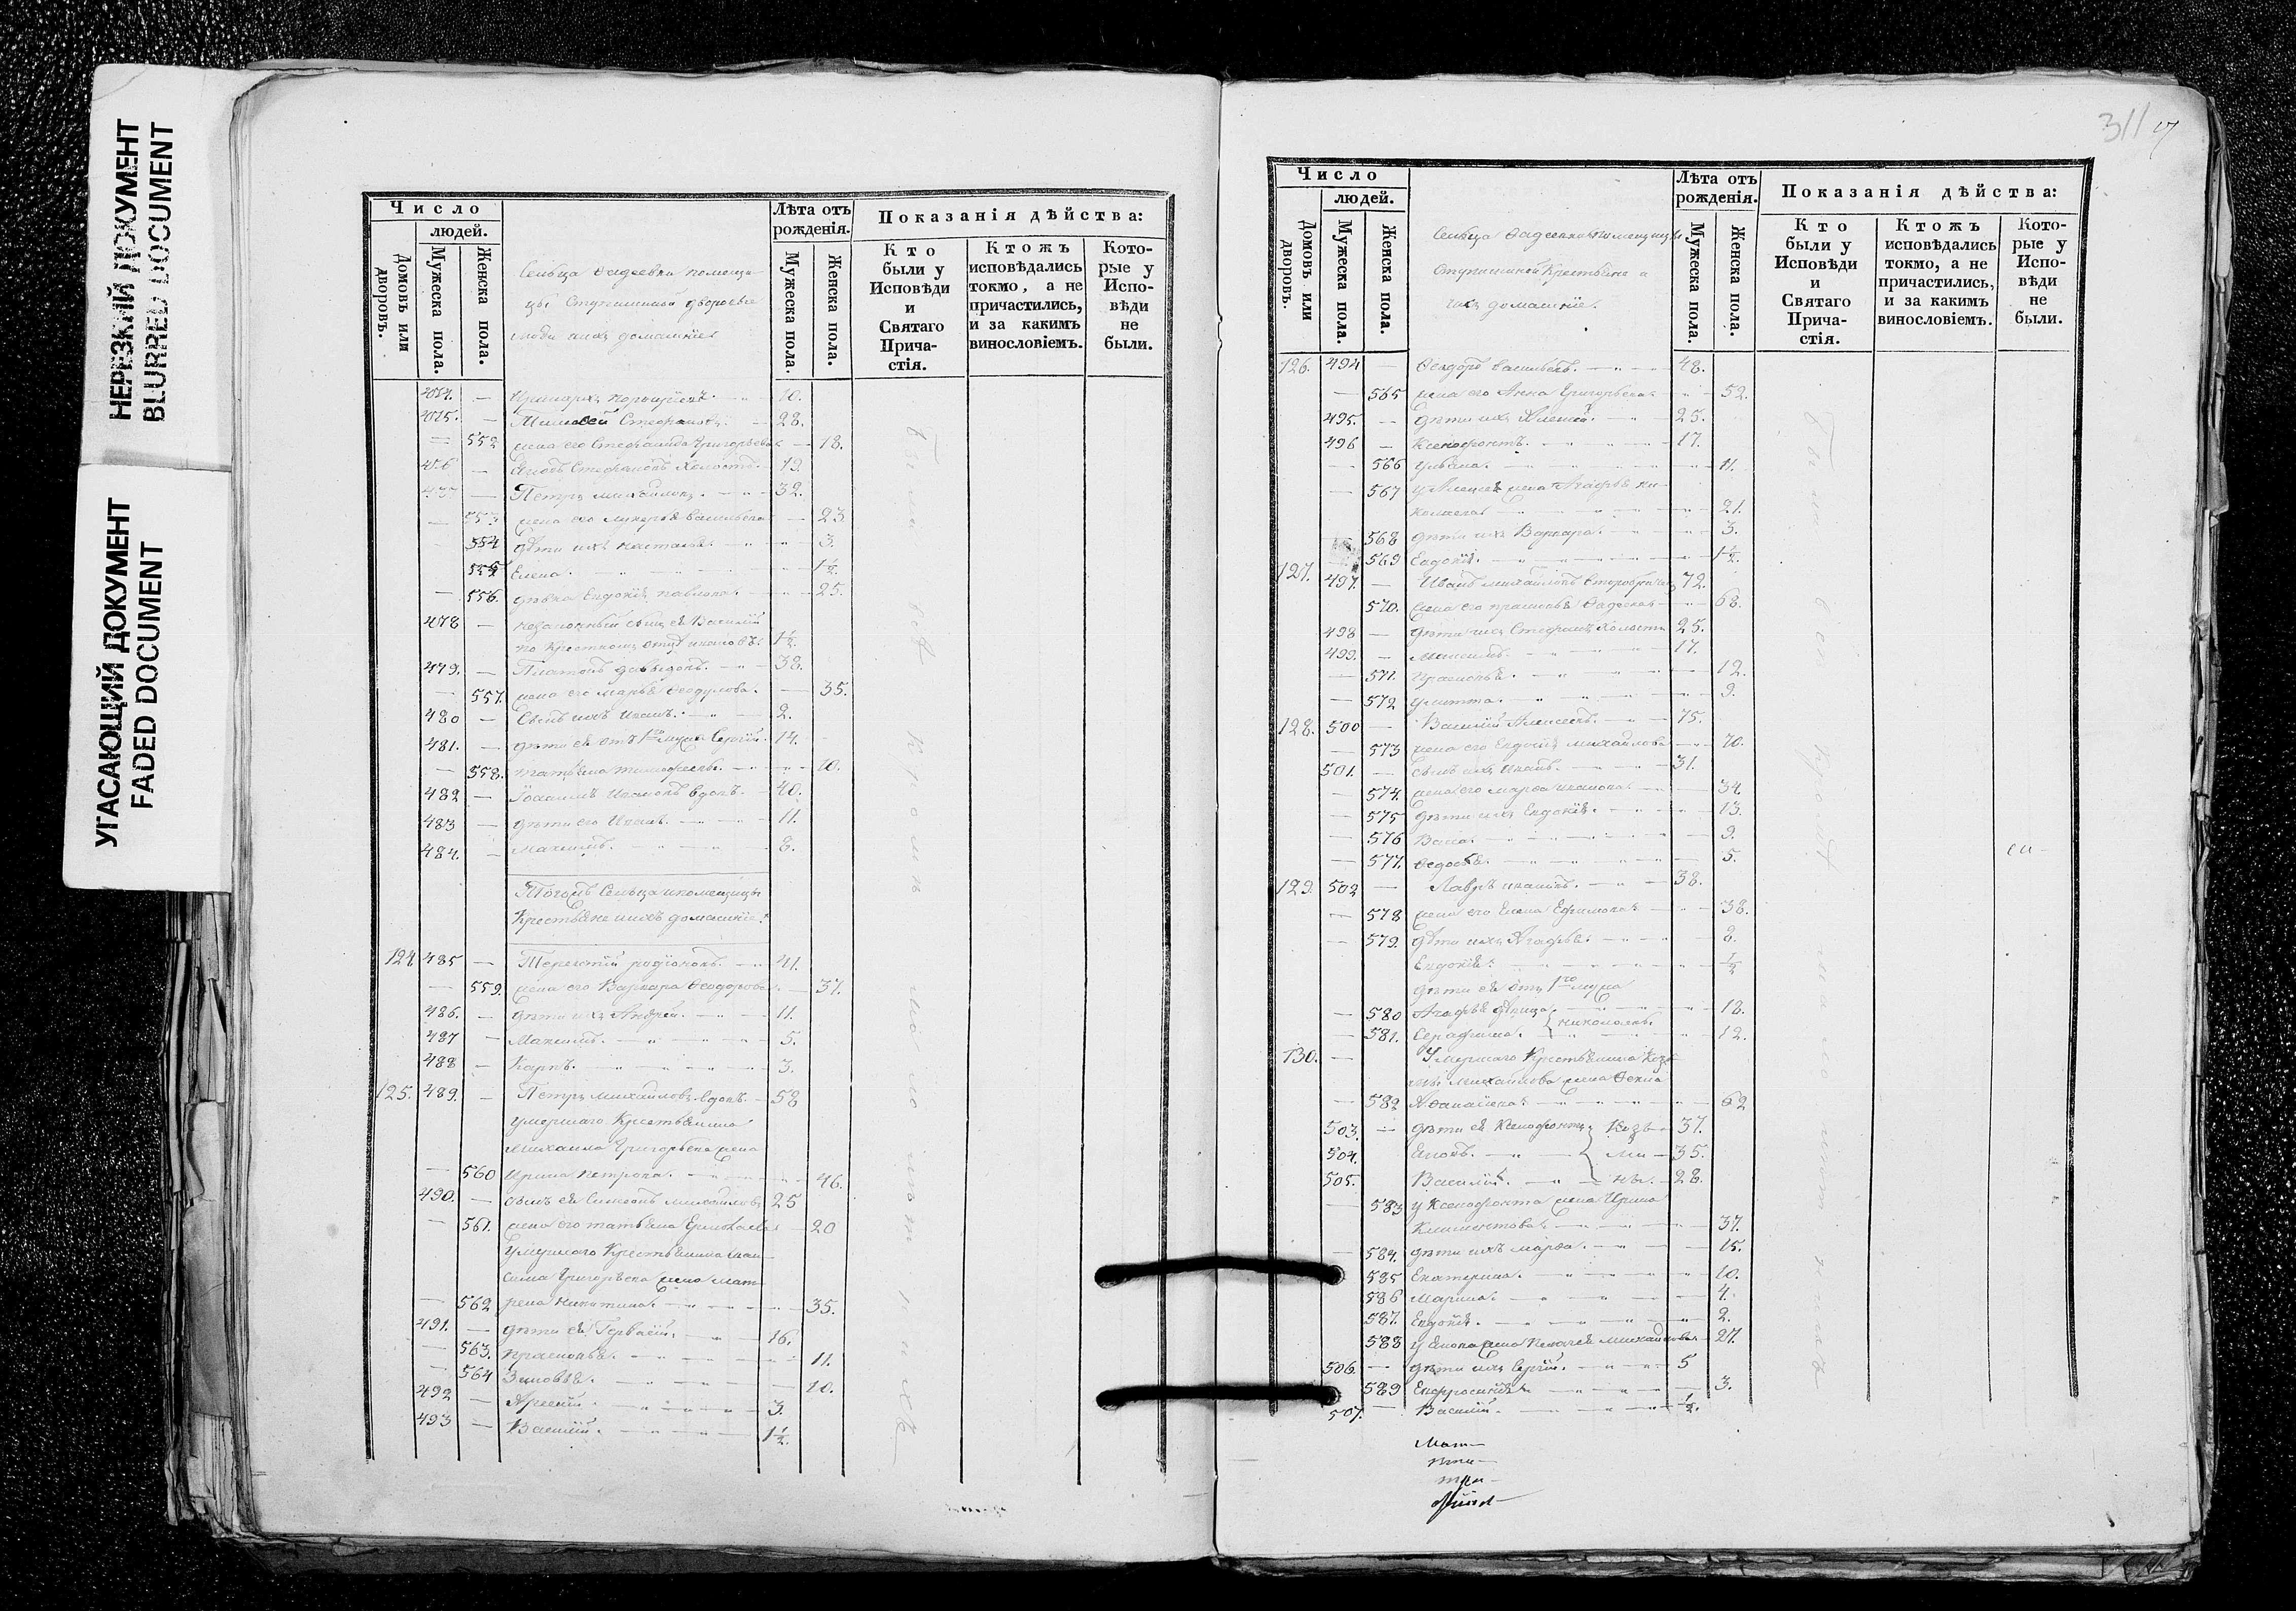 НЕРЕЗКИЙ ДОКУМЕНТ
BLURRED DOCUMENT
УГАСАЮЩИЙ ДОКУМЕНТ
FADED DOCUMENT
Число
людей.
Домовъ или дворовъ.
Мужеска пола.
Женска пола.
Сельца Фадеевки помещи-
цы дворовые
люди и ихъ домашніе
Лѣта отъ рожденія.
Мужеска пола.
Женска пола.
Показанія дѣйства:
Кто были у Исповѣди и Святаго Прича-стія.
Ктожъ исповѣдались токмо, а не причастились, и за какимъ винословіемъ.
Кото-рые у Испо-вѣди не были.
— 10.
— Стефановъ. — 28.
— 552 жена его Стефанида Григорьева — 18.
— Яковъ Стефановъ холостъ — 19.
— Петръ Михайловъ. — 32.
— 553 жена его Лукерья Васильева — 23.
554 дѣти ихъ Наталья — 3.
555 Елена — 1½.
— 556. дѣвка Евдокія Павлова — 25.
478 — незаконный сынъ ея Василій
по крестному отцу Ивановъ 1½.
479. — Платонъ Давыдовъ. — 38.
— 557. жена его Марья Феодулова. — 35.
480 — Сынъ ихъ Иванъ. — 2.
481. — дѣти ея отъ 1го мужа Сергій. 14.
— 558. Татьяна Тимофеевы. — 10.
482 — Іоакимъ Ивановъ вдовъ. — 40.
483 — дѣти его Иванъ. — 11.
484. — Максимъ. — 8.
Тогожъ Сельца и помещицы
Крестьяне и ихъ домашніе.
124. 485 — Терентій Родіоновъ. — 41.
— 559. жена его Варвара Феодорова. — 37.
486. — дѣти ихъ Андрей. — 11.
487 — Максимъ. — 5.
488 — Карпъ. — 3.
125. 489. — Петръ Михайловъ вдовъ. — 58
умершаго Крестьянина
Михаила Григорьева жена
— 560 Ирина Петрова. — 46.
490. — сынъ ея Симеонъ Михайловъ 25
— 561. жена его Татьяна Ермолаева — 20
умершаго Крестьянина Мак-
сима Григорьева жена Мат-
— 562 рена Никитина. — 35.
491. — дѣти ея Гервасій. — 16.
— 563. Прасковья. — 11.
— 564 Зиновья. — 10.
492 — Арсеній. — 3.
493 — Василій. — 1½.
Были вѣ кромѣ малолѣтнихъ
311
Число
людей.
Домовъ или дворовъ.
Мужеска пола.
Женска пола.
Сельца Фадеевки помещицы
Крестьяне и
ихъ домашніе.
Лѣта отъ рожденія.
Мужеска пола.
Женска пола.
Показанія дѣйства:
Кто были у Исповѣди и Святаго Прича-стія.
Ктожъ исповѣдались токмо, а не причастились, и за какимъ винословіемъ.
Кото-рые у Испо-вѣди не были.
126. 494 — Феодоръ Васильевъ. — 48.
— 565 жена его Анна Григорьева — 52.
495. — дѣти ихъ Алексій. — 25.
496 — Ксенофонтъ. — 17.
— 566 Ульяна. — 11.
— 567 у Алексея жена Агафья Ни-
колаева — 21.
568 дѣти ихъ Варвара. — 3.
569 Евдокія. — 1½.
127. 497. — Иванъ Михайловъ 72.
570. жена его Прасковья Фадеева — 68.
498 — дѣти ихъ Стефанъ холостъ 25.
499. — Максимъ. — 17.
— 571. Прасковья. — 12.
— 572 Улитта. — 9.
128. 500 — Василій Алексеевъ. — 75.
— 573 жена его Евдокія Михайлова — 70.
501. — сынъ ихъ Иванъ. — 31.
— 574. жена его Марфа Иванова — 34.
— 575 дѣти ихъ Евдокія. — 13.
— 576 Васса. — 9.
— 577. Федосья. — 5.
129. 502 — Лавръ Ивановъ. — 38.
— 578 жена его Елена Ефимова — 38.
— 579. дѣти ихъ Агафья. — 8.
Евдокія. — ½
дѣти ея отъ 1го мужа
— 580 Агафья дѣвица — 18.
— 581. Серафима. Николаевы. — 12.
130. — Умершаго Крестьянина Козь-
мы Михайлова жена Фекла
— 582 Афанасьева — 62
503. — дѣти ея Ксенофонтъ Козь — 37.
504. Яковъ. — ми — 35.
505. Василій. — ны. — 28.
— 583 у Ксенофонта жена Ирина
Климентова — 37.
— 584. дѣти ихъ Марфа. — 15.
585 Екатерина. — 10.
586 Марина. — 4.
587. Евдокія. — 2.
588 у Якова жена Пелагея Михайлова — 27.
506. — дѣти ихъ Сергій. — 5
589 Евфросинія — 3.
507. — Василій. — ½.